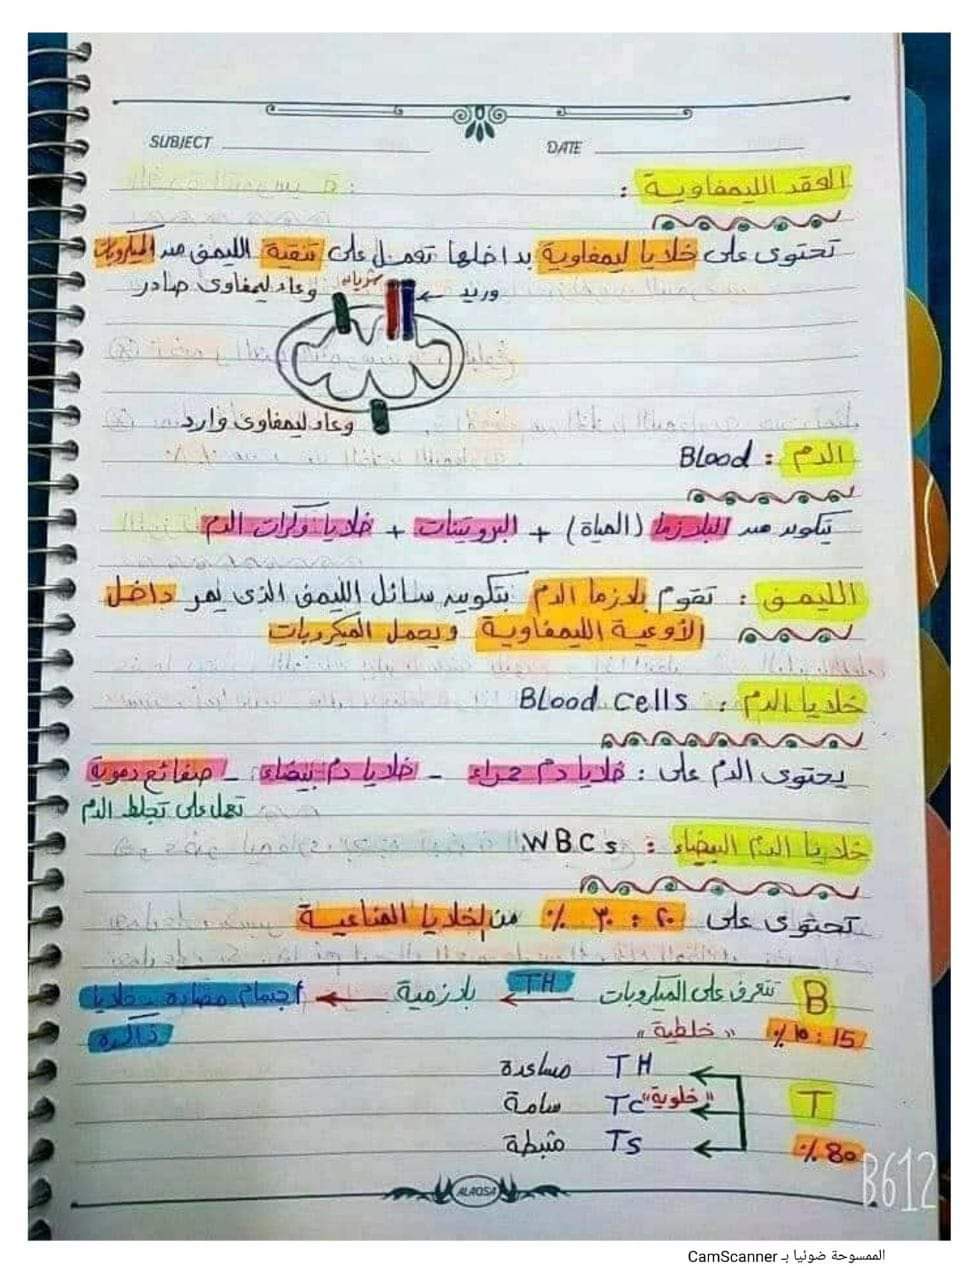 SUBJECT
DATE
العقد الليمفاوية :
تحتوى على خلايا ليمفاوية بداخلها تعمل على تنقية الليمف من الميكروبات
وريد
شريان
وعاء ليمفاوى صادر
وعاء ليمفاوى وارد
الدم : Blood
يتكون من البلازما (المياة) + البروتينات + خلايا وكرات الدم
الليمف : تقوم بلازما الدم بتكوين سائل الليمف الذى يمر داخل
الأوعية الليمفاوية ويحمل الميكروبات
خلايا الدم : Blood cells
يحتوى الدم على : خلايا دم حمراء - خلايا دم بيضاء - صفائح دموية
تعمل على تجلط الدم
خلايا الدم البيضاء : WBCs
تحتوى على ٢٠ : ٣٠ ٪ من الخلايا المناعية
B تتعرف على الميكروبات TH بلازمية أجسام مضادة - خلايا
ذاكرة
١٥ : 15 ٪ " خلطية "
TH مساعدة
T "خلوية" Tc سامة
80 ٪ Ts مثبطة
ALAQSA
B612
الممسوحة ضوئيا بـ CamScanner